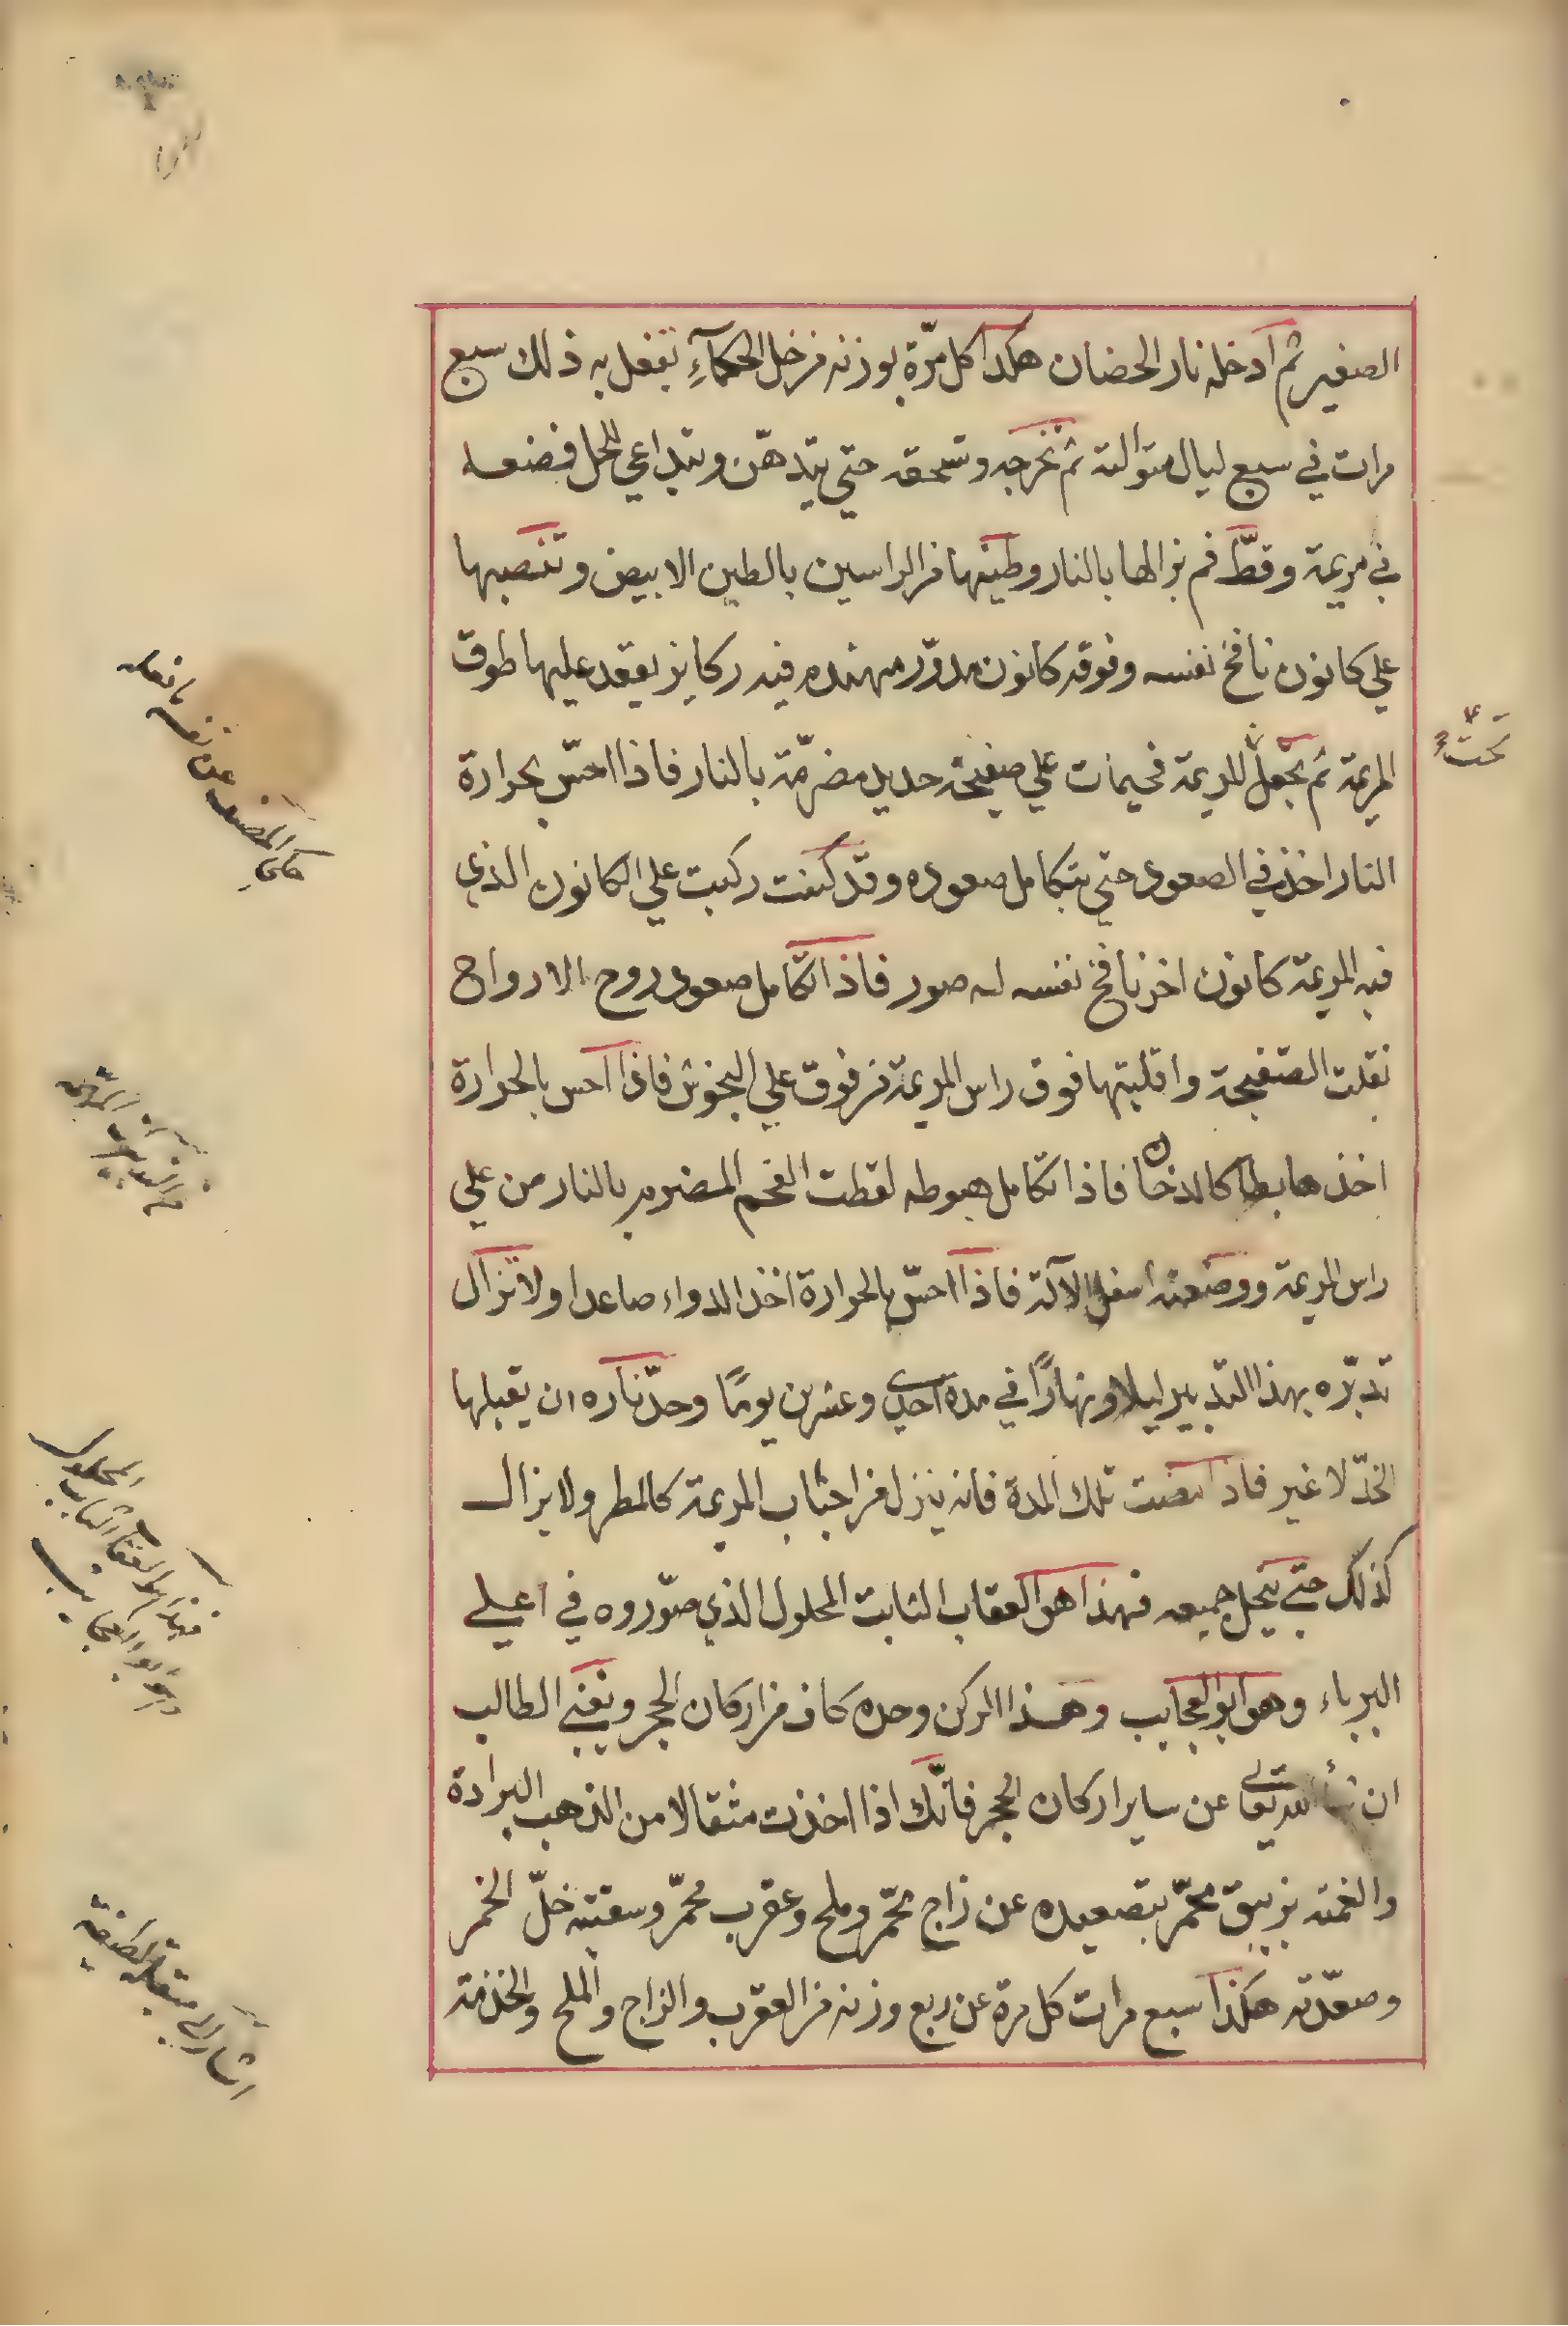 الصغير ثم ادخله نار الحضان هكذا كل مرّة بوزنه من خل الحكمآءِ تفعل به ذلك سبع
مرات في سبع ليال متوالية ثم تخرجه وتسحقه حتي يتدهّن ويتداعي للحل فضعه
في مريمة وقطّ فم بزالها بالنار وطينها من الراسين بالطين الابيض وتنصبها
علي كانون نافخ نفسه وفوقه كانون مدوّر مهندم فيه ركايز يعقد عليها طوق
المريمة ثم تجعل للمريمة فحيمات علي صفيحة حديد مضرّمة بالنار فاذا احسّ بحرارة
تحت
النار اخذ في الصعود حتي يتكامل صعوده وقد كنت ركبت علي الكانون الذي
فيه المريمة كانون اخر نافخ نفسه له صور فاذا تكامل صعود روح الارواح
نقلت الصفيحة واقلبتها فوق راس المريمة من فوق علي البخوش فاذا احس بالحرارة
اخذ هابطا كالدخان فاذا تكامل هبوطه لقطت الفحم المضرم بالنار من علي
راس المريمة ووضعته اسفل الآلة فاذا احسّ بالحرارة اخذ الدواء صاعدا ولا تزال
تدبّره بهذا التدبير ليلا ونهارًا في مدة احدي وعشرين يومًا وحدّ ناره ان يقبلها
الخدّ لا غير فاذا انقضت تلك المدة فانه ينزل من اجناب المريمة كالمطر ولا يزال
كذلك حتي ينحل جميعه فهذا هو العقاب الثابت المحلول الذي صوّروه في اعلي
البرباء وهو ابو العجايب وهذا الركن وحده كاف من اركان الحجر ويغني الطالب
ان شأ الله تعالي عن ساير اركان الحجر فانّك اذا اخذت مثقالا من الذهب البرادة
والغمته بزيبق محمّر بتصعيده عن زاج محمّر وملح وعقرب محمّر وسقيته خلّ الخمر
وصعّدته هكذا سبع مرات كل مرة عن ربع وزنه من العقرب والزاج والملح والخذمة
حكي المصنف عن نفسه ما فعله
فهذا هو العقاب الثابت المحلول
وهو ابو العجايب